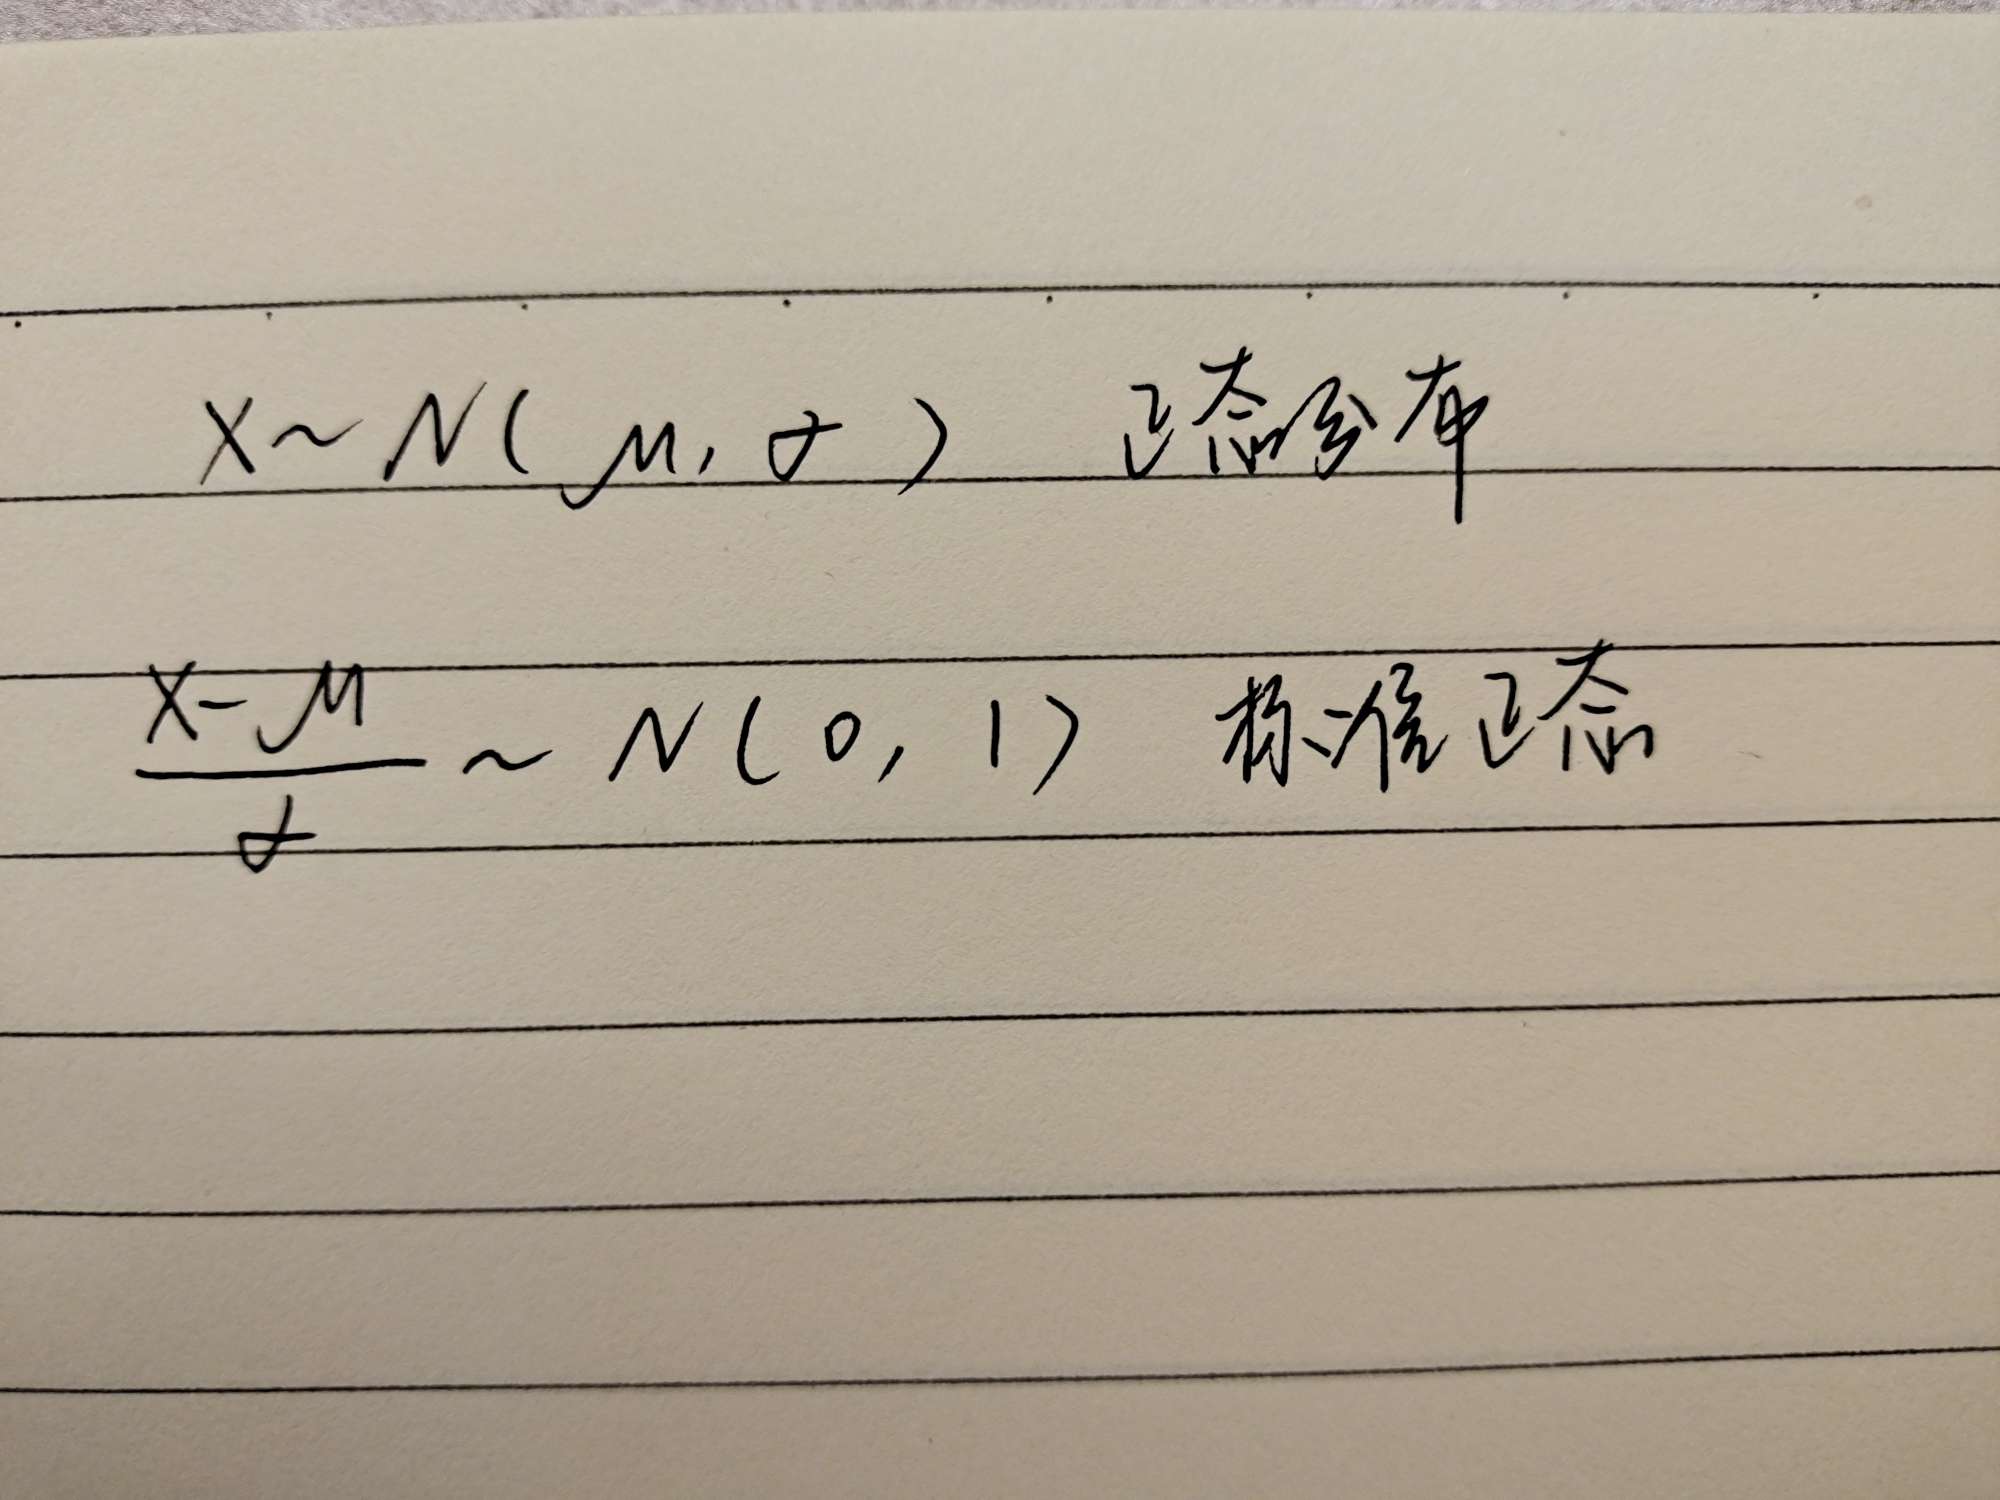 X ~ N ( μ, σ ) 正态分布
(X - μ) / σ ~ N ( 0, 1 ) 标准正态